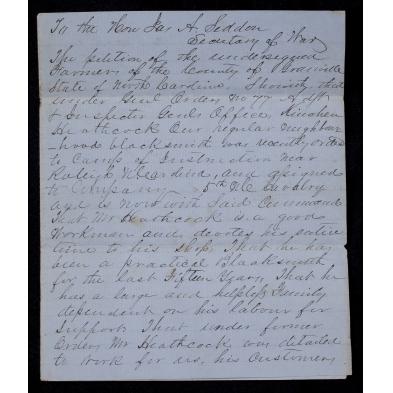 To the Hon Jas A. Seddon
Secretary of War
The petition of the undersigned
Farmers of the County of Granville
State of North Carolina. Showeth that
under Genl Orders No 77 Adjt
& Inspector Genls Office,
Heathcock Our regular neighbor
-hood blacksmith was recently ordered
to Camp of Instruction near
Raleigh N Carolina, and assigned
to Company 5th NC Cavalry
and is now with said Command
That Mr Heathcock is a good
Workman and devotes his entire
time to his shop. That he has
been a practical Blacksmith
for the last Fifteen Years, That he
has a large and helpless Family
dependent on his labour for
Support. That under former
Orders Mr Heathcock was detailed
to work for us, his Customers